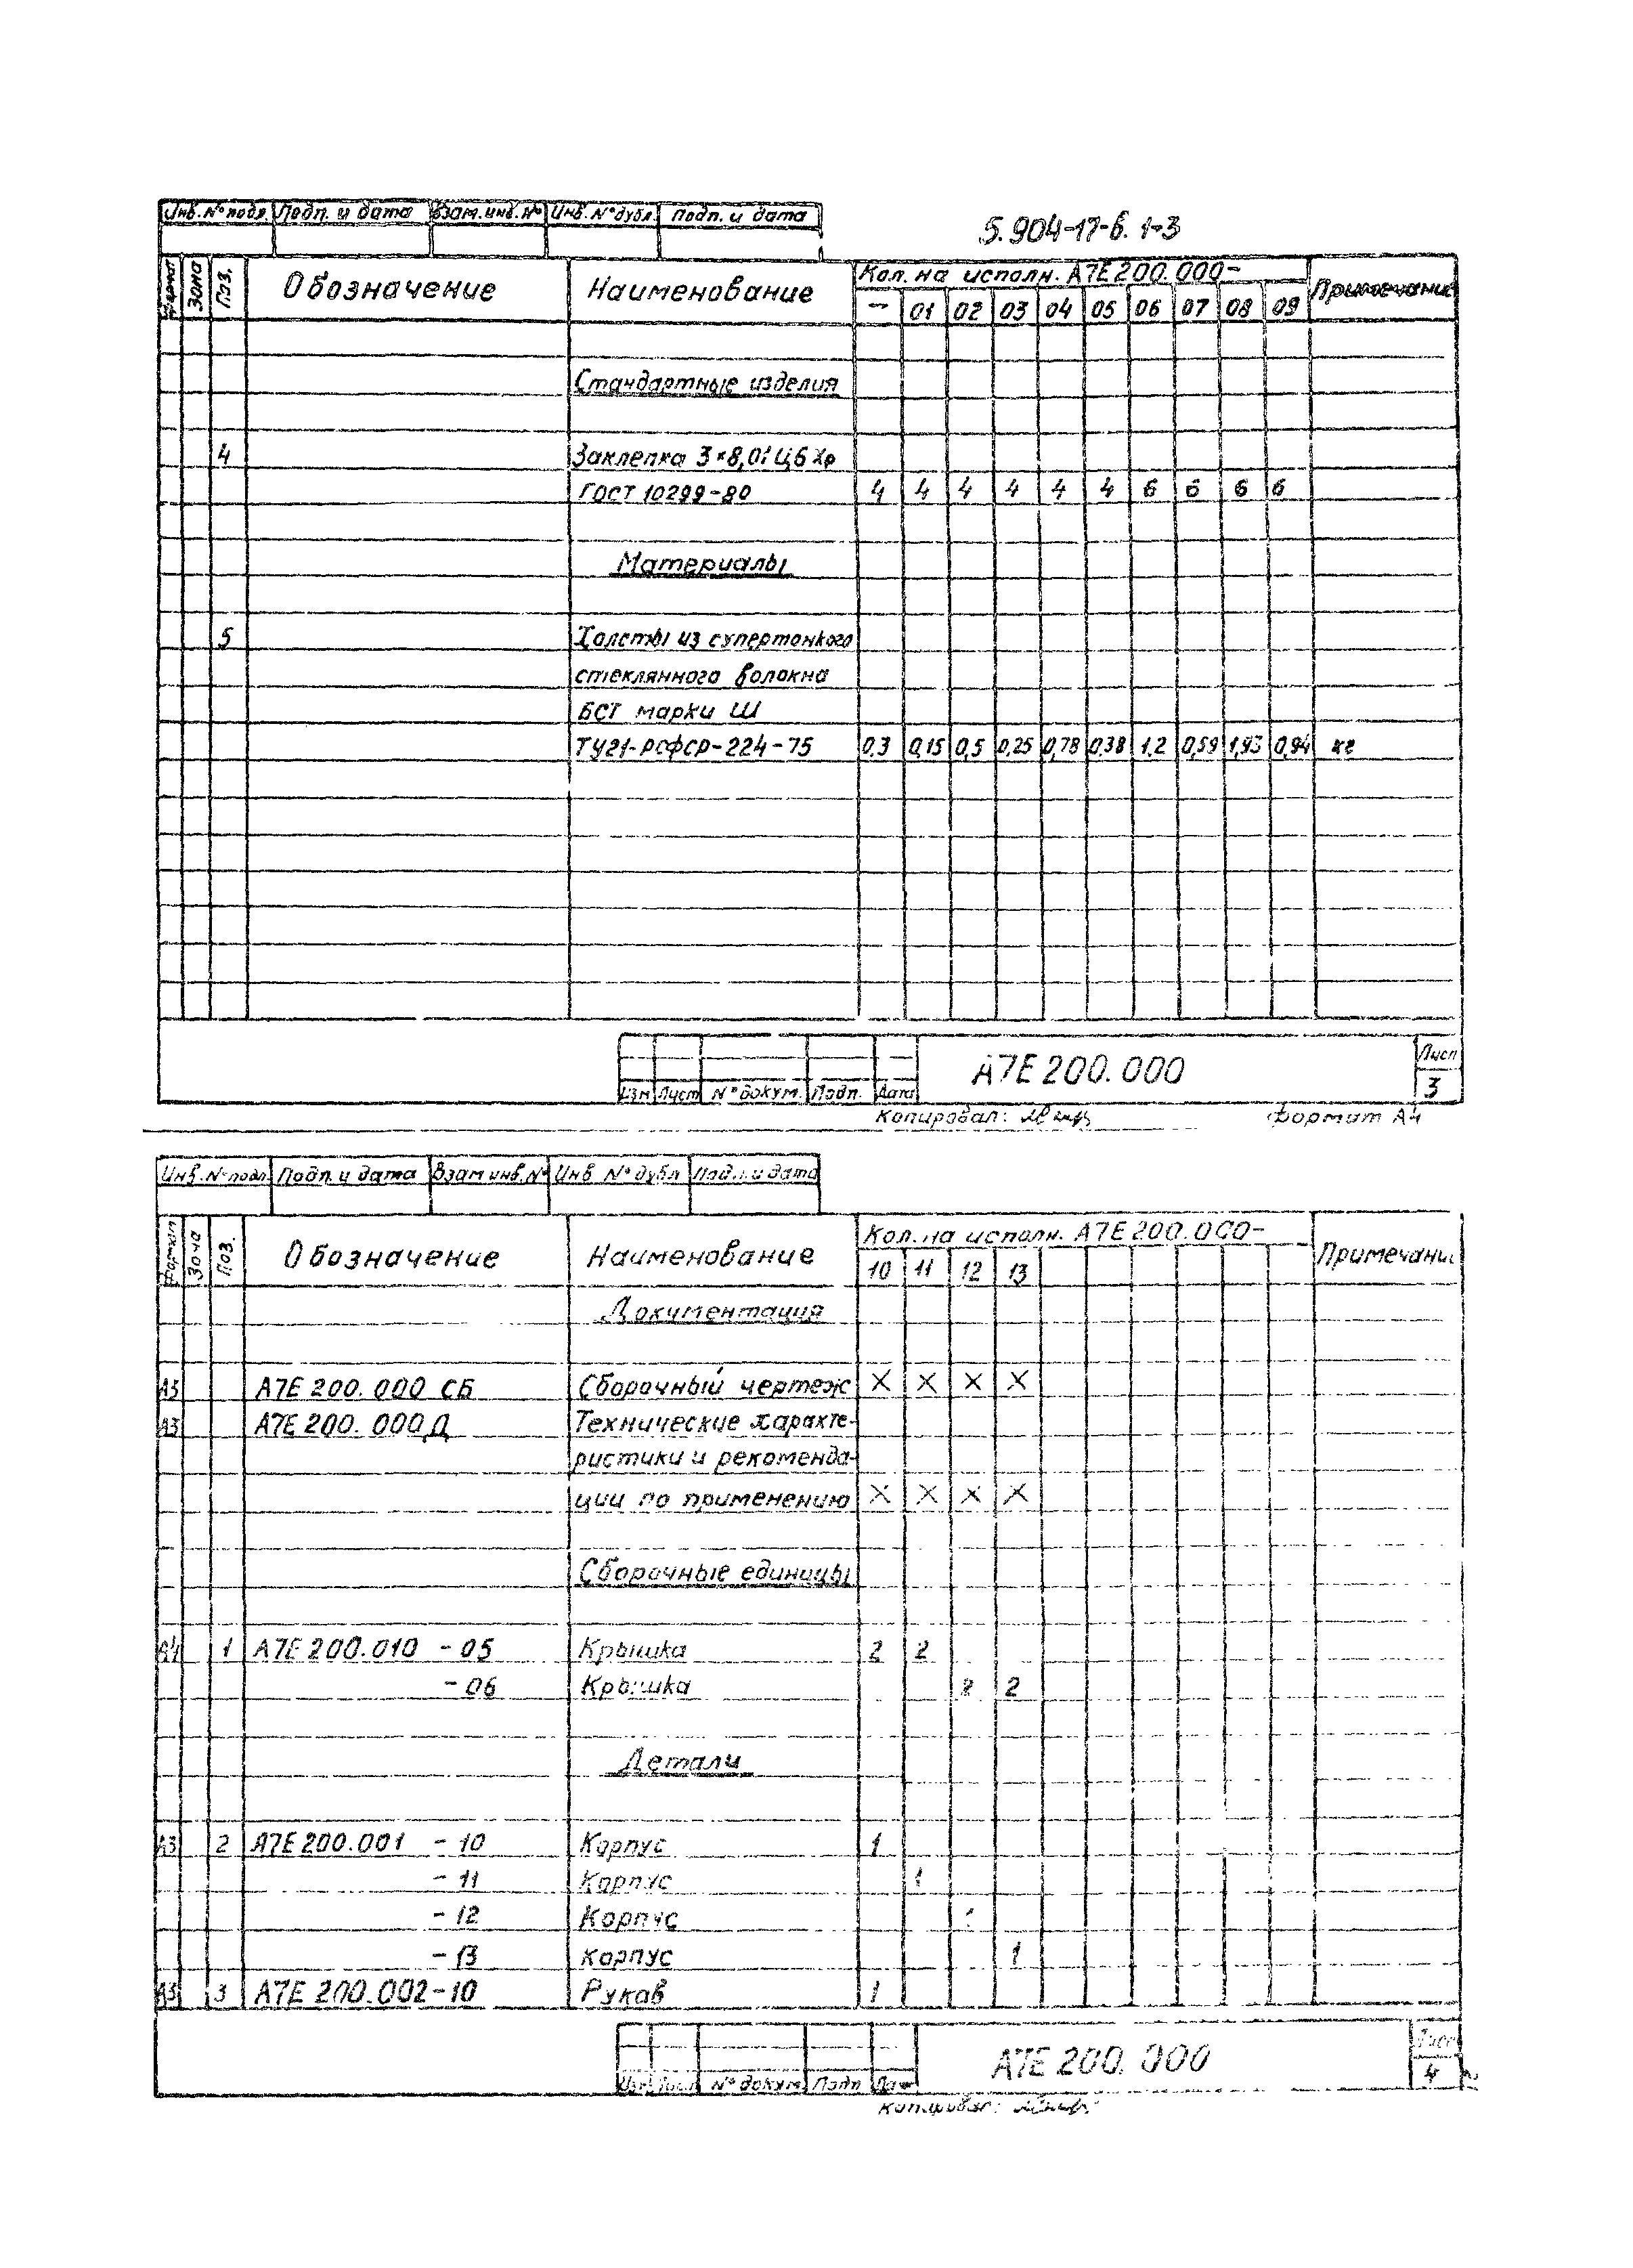 Инв. № подл. Подп. и дата Взам. инв. № Инв. № дубл. Подп. и дата
5.904-17-в. 1-3
Формат Зона Поз. Обозначение Наименование Кол. на исполн. А7Е 200.000- Примечание
- 01 02 03 04 05 06 07 08 09
Стандартные изделия
4 Заклепка 3×8,01 Ц6 хр
ГОСТ 10299-80 4 4 4 4 4 4 6 6 6 6
Материалы
5 Холсты из супертонкого
стеклянного волокна
БСТ марки Ш
ТУ21-РСФСР-224-75 0,3 0,15 0,5 0,25 0,78 0,38 1,2 0,59 1,93 0,94 кг
А7Е 200.000 Лист
3
Изм Лист № докум. Подп. Дата
Копировал: Формат А4
Инв. № подл. Подп. и дата Взам инв. № Инв № дубл Подп. и дата
Формат Зона Поз. Обозначение Наименование Кол. на исполн. А7Е 200.000- Примечание
10 11 12 13
Документация
А3 А7Е 200.000 СБ Сборочный чертеж X X X X
А3 А7Е 200.000 Д Технические характе-
ристики и рекоменда-
ции по применению X X X X
Сборочные единицы
А4 1 А7Е 200.010 - 05 Крышка 2 2
- 06 Крышка 2 2
Детали
А3 2 А7Е 200.001 - 10 Корпус 1
- 11 Корпус 1
- 12 Корпус 1
- 13 Корпус 1
А3 3 А7Е 200.002-10 Рукав 1
А7Е 200.000 Лист
4
Изм Лист № докум Подп Дат
Копировал: